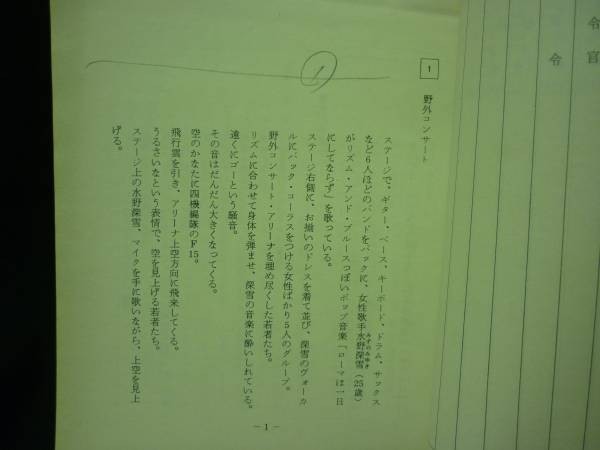 令
官
令
①
1
野外コンサート
ステージで、ギター、ベース、キーボード、ドラム、サックス
など6人ほどのバンドをバックに、女性歌手水野深雪(25歳)
みずのみゆき
がリズム・アンド・ブルースっぽいポップ音楽「ローマは一日
にしてならず」を歌っている。
ステージ右側に、お揃いのドレスを着て並び、深雪のヴォーカ
ルにバック・コーラスをつける女性ばかり5人のグループ。
野外コンサート・アリーナを埋め尽くした若者たち。
リズムに合わせて身体を弾ませ、深雪の音楽に酔いしれている。
遠くにゴーという騒音。
その音はだんだん大きくなってくる。
空のかなたに四機編隊のF15。
飛行雲を引き、アリーナ上空方向に飛来してくる。
うるさいなという表情で、空を見上げる若者たち。
ステージ上の水野深雪、マイクを手に歌いながら、上空を見上
げる。
-1-